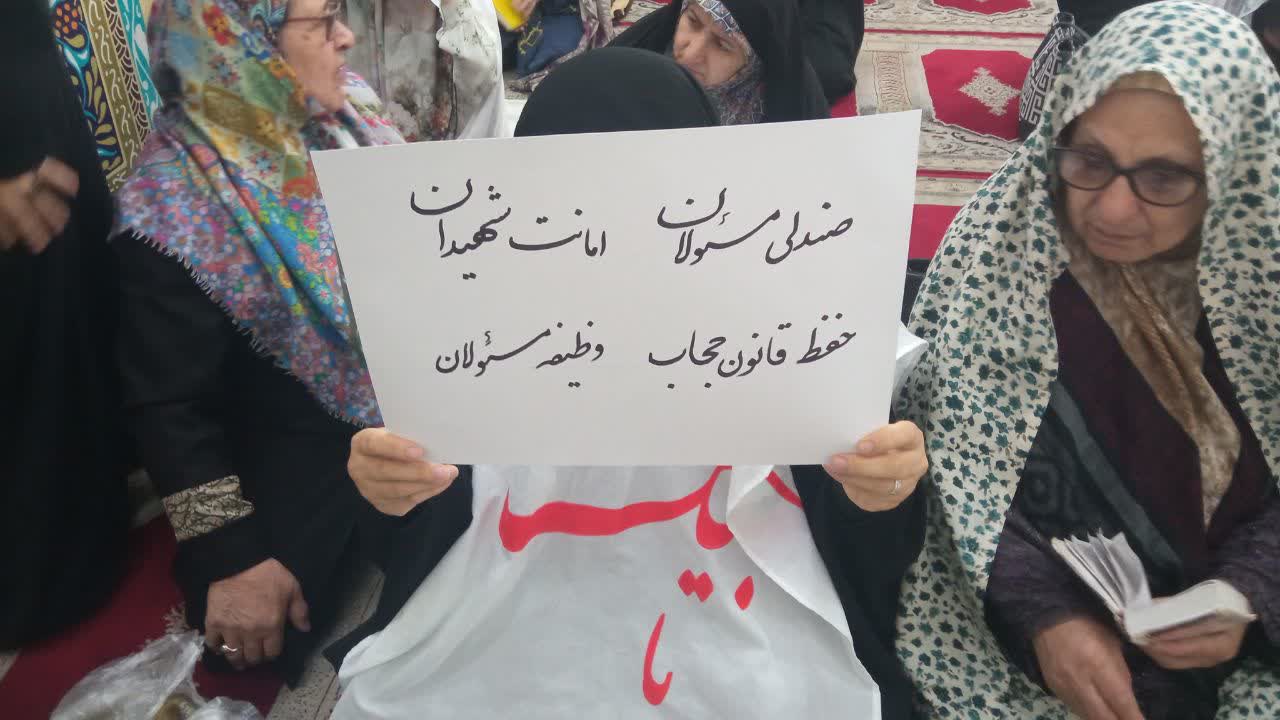 صندلی مسئولان امانت شهیدان
حفظ قانون حجاب وظیفه مسئولان
تا